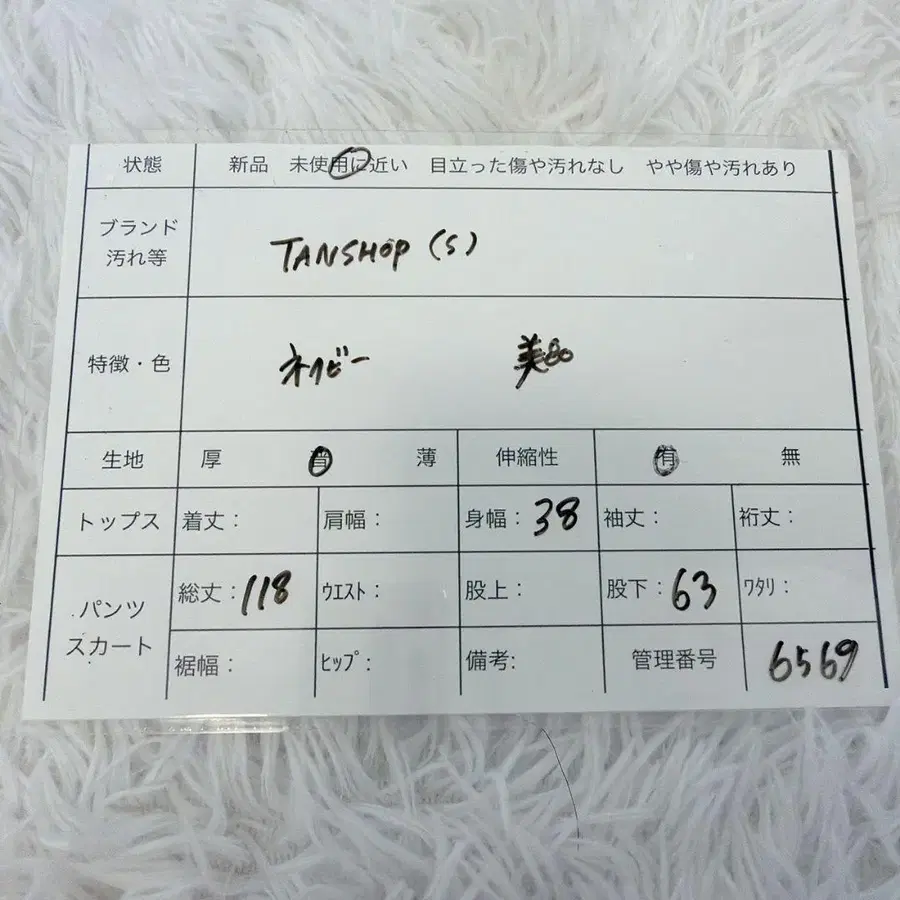 状態 新品 未使用に近い 目立った傷や汚れなし やや傷や汚れあり
ブランド
汚れ等
TANSHOP (S)
特徴・色 ネイビー 美品
生地 厚 普 薄 伸縮性 有 無
トップス 着丈: 肩幅: 身幅: 38 袖丈: 裄丈:
パンツ
スカート
総丈: 118 ウエスト: 股上: 股下: 63 ワタリ:
裾幅: ヒップ: 備考: 管理番号 6569